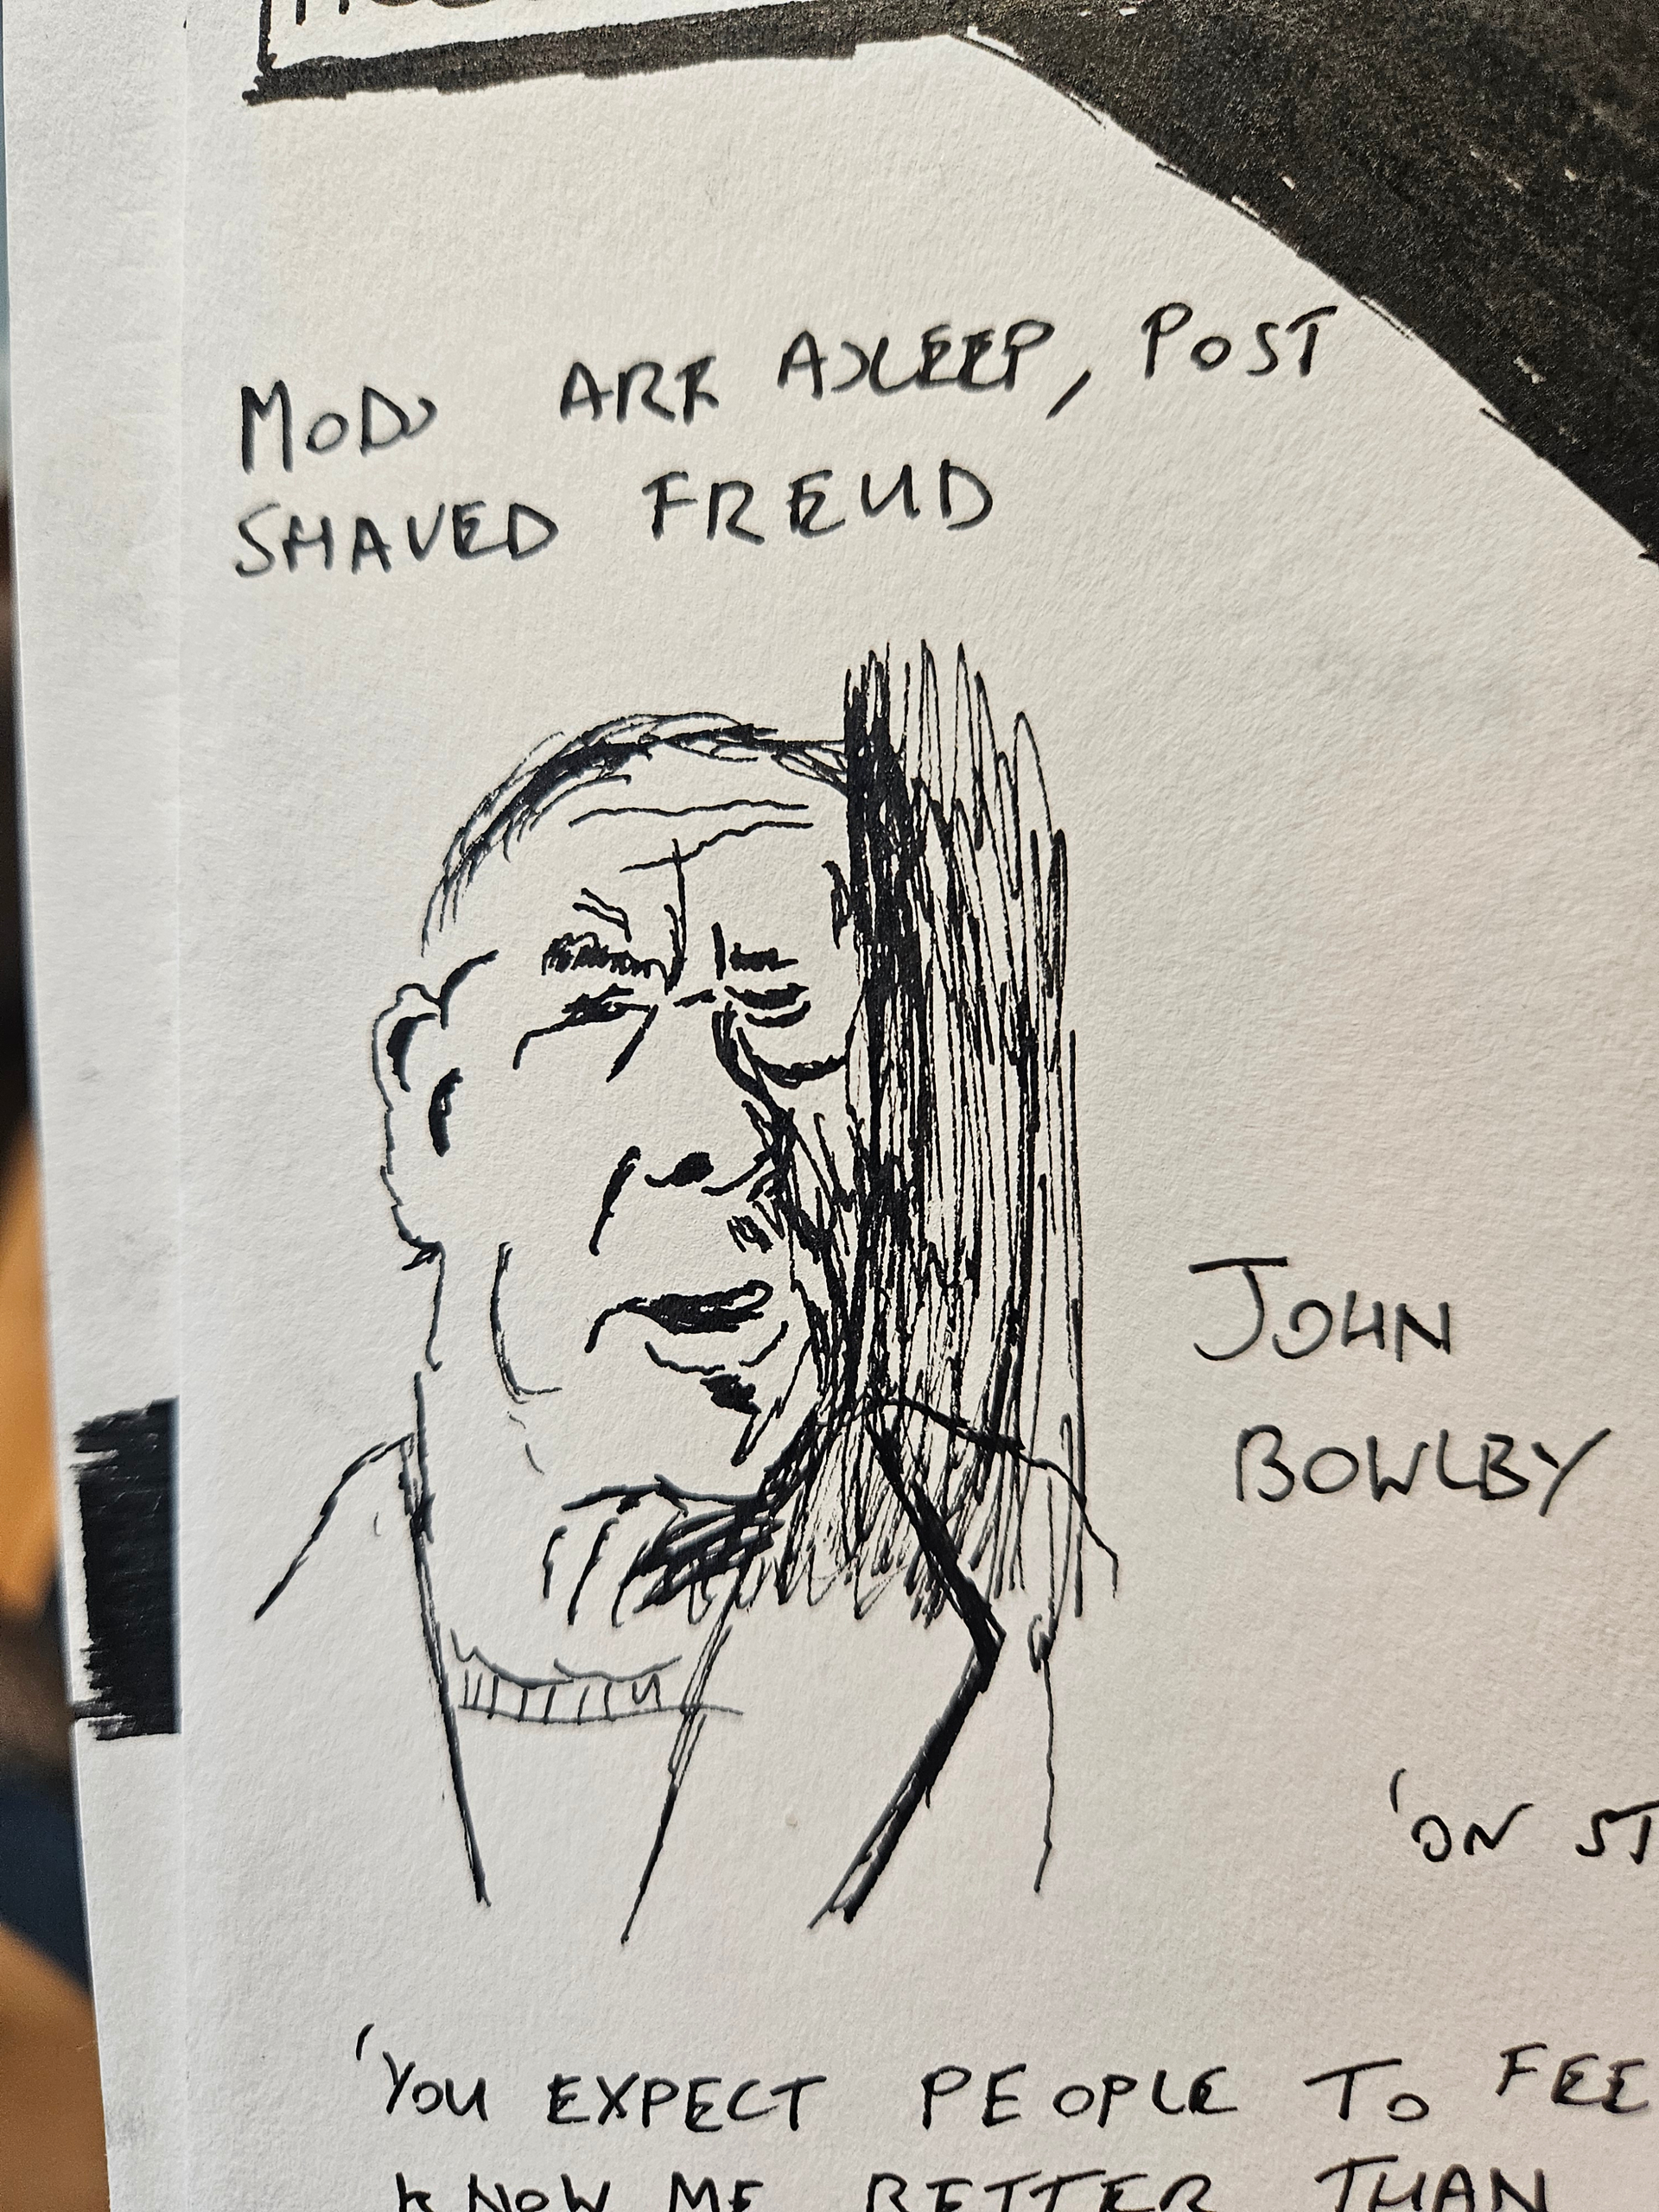 MODS ARE ASLEEP, POST
SHAVED FREUD
JOHN
BOWLBY
'ON ST
'YOU EXPECT PEOPLE TO FEE
KNOW ME BETTER THAN